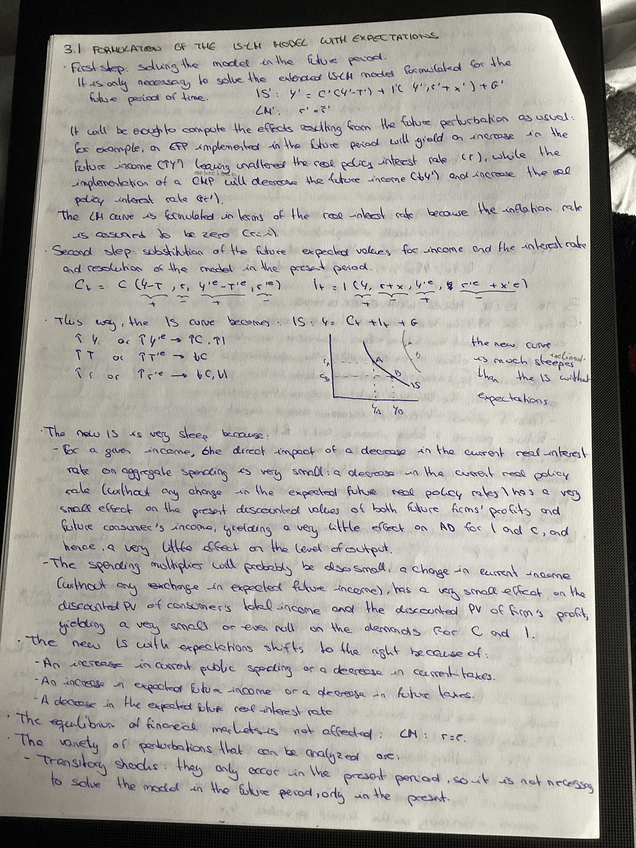 3.1 FORMULATION OF THE IS-LM MODEL WITH EXPECTATIONS
· First step: solving the model in the future period.
It is only necessary to solve the extended IS-LM model formulated for the
future period of time. IS': Y' = C'(Y'-T') + I'(Y', r'+x') + G'
LM': r' = r̄'
It will be enough to compute the effects resulting from the future perturbation as usual:
for example, an EFP implemented in the future period will yield an increase in the
future income (↑Y') leaving unaltered the real policy interest rate (r'), while the
implementation of a CMP will decrease the future income (↓Y') and increase the real
policy interest rate (↑r').
The LM curve is formulated in terms of the real interest rate because the inflation rate
is assumed to be zero (r=i).
· Second step: substitution of the future expected values for income and the interest rate
and resolution of the model in the present period.
Ct = C (Y-T, r, Y'e-T'e, r'e) It = I (Y, r+x, Y'e, r'e + x'e)
+ - + - + - + -
· This way, the IS curve becomes: IS: Y = Ct + It + G
↑Y or ↑Y'e → ↑C, ↑I
↑T or ↑T'e → ↓C
↑r or ↑r'e → ↓C, ↓I
A
B
IS
YA YB
the new curve
is much steeper
than the IS without
expectations
· The new IS is very steep because:
- For a given income, the direct impact of a decrease in the current real interest
rate on aggregate spending is very small: a decrease in the current real policy
rate (without any change in the expected future real policy rates) has a very
small effect on the present discounted values of both future firms' profits and
future consumer's income, yielding a very little effect on AD for I and C, and
hence, a very little effect on the level of output.
- The spending multiplier will probably be also small, a change in current income
(without any exchange in expected future income), has a very small effect on the
discounted PV of consumer's total income and the discounted PV of firm's profit,
yielding a very small or even null on the demands for C and I.
· The new IS with expectations shifts to the right because of:
- An increase in current public spending or a decrease in current taxes.
- An increase in expected future income or a decrease in future taxes.
- A decrease in the expected future real interest rate
· The equilibrium of financial markets is not affected: LM: r=r̄.
· The variety of perturbations that can be analyzed are:
- Transitory shocks: they only occur in the present period, so it is not necessary
to solve the model in the future period, only in the present.